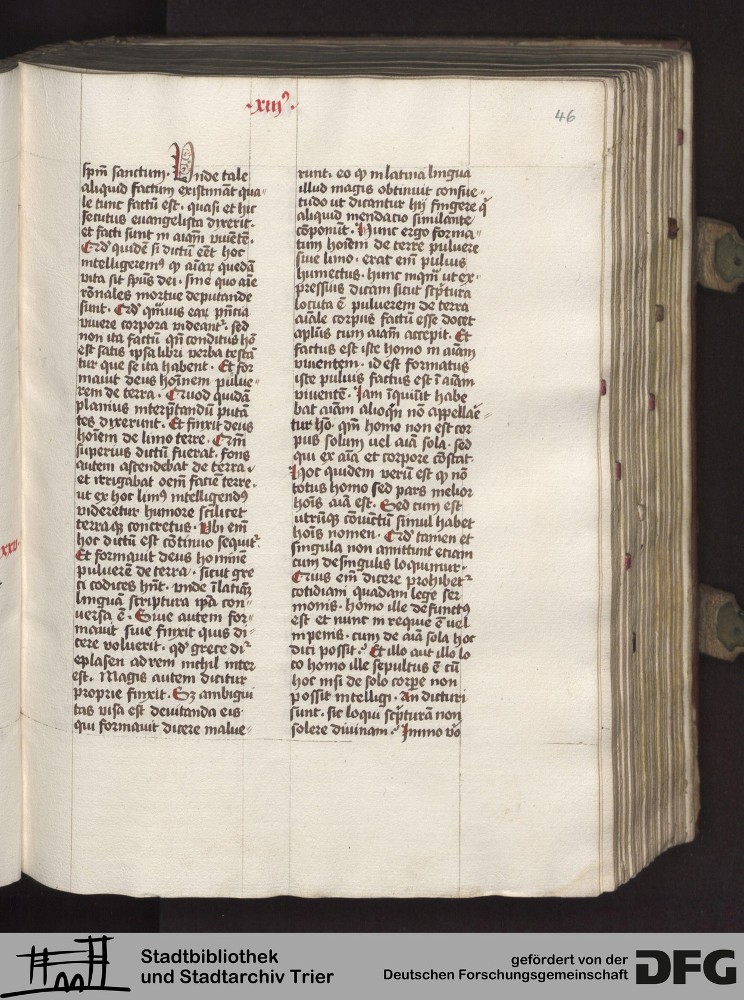 ·xiijꝰ·
46
sp̄m sanctum· Vnde tale
aliquid factum existimāt qua-
le tunc factū est· quasi et hic
secutus euangelista dixerit·
et facti sunt in aīam viuētē·
intelligeremꝰ ꝙ aīaꝝ quedā
vita sit sp̄us dei· sine quo aīe
rōnales mortue deputande
viuere corpora videant᷑· sed
non ita factū qn̄ conditus hō
est satis ipsa libri verba testā
tur que se ita habent· Et for
mauit deus hoīnem pulue-
rem de terra· Quod quidā
planius interp̄tandū putā
tes dixerunt· Et finxit deus
hoīem de limo terre·
superius dictū fuerat· fons
autem ascendebat de terra·
et irrigabat oēm faciē terre·
ut ex hoc limꝰ intelligendꝰ
videretur humore scilicet
terraqꝫ concretus· Vbi em̄
hoc dictū est cōtinuo sequit᷑·
Et formauit deus hominē
puluerē de terra· sicut gre
ci codices hn̄t· vnde ī latinā
linguā scriptura ip̄a con-
versa ē· Siue autem for-
mauit siue finxit quis di-
cere voluerit· qd̓ grece di
eplasen ad rem nichil inter
est· Magis autem dicitur
proprie finxit· Sꝫ ambigui
tas visa est deuitanda eis
qui formauit dicere malue-
runt· eo ꝙ in latina lingua
illud magis obtinuit consue-
tudo ut dicantur hij fingere q̇
aliquid mendatio similante
cōponūt· Hunc ergo forma-
tum hoīem de terre puluere
siue limo· erat em̄ puluis
humectus· hunc inqͣm ut ex-
pressius dicam sicut scp̄tura
locuta ē puluerem de terra
aīale corpus factū esse docet
aplūs cum aīam accepit· Et
factus est iste homo in aīam
viuentem· id est formatus
iste puluis factus est ī aīam
viuentē· Iam īquiūt habe
bat aīam alioqn̄ nō appellae-
tur hō· qm̄ homo non est cor
pus solum uel aīa sola· sed
qui ex aīa et corpore cōstat·
Hoc quidem verū est ꝙ nō
totus homo sed pars melior
hoīs aīa est· Sed cum est
utrūqꝫ cōiūctū simul habet
hoīs nomen·
singula non amittunt etiam
cum de singulis loquimur·
cotidiani quadam lege ser
monis· homo ille defunctꝰ
est et nunc in requie ē vel
in penis· cum de aīa sola hoc
dici possit· Et illo aut illo lo
co homo ille sepultus ē cū
hoc nisi de solo corpe non
possit intelligi· An dicturi
sunt· sic loqui scp̄turā non
solere diuinam· Immo vo̓
xxv·
Stadtbibliothek
und Stadtarchiv Trier
gefördert von der
Deutschen Forschungsgemeinschaft
DFG